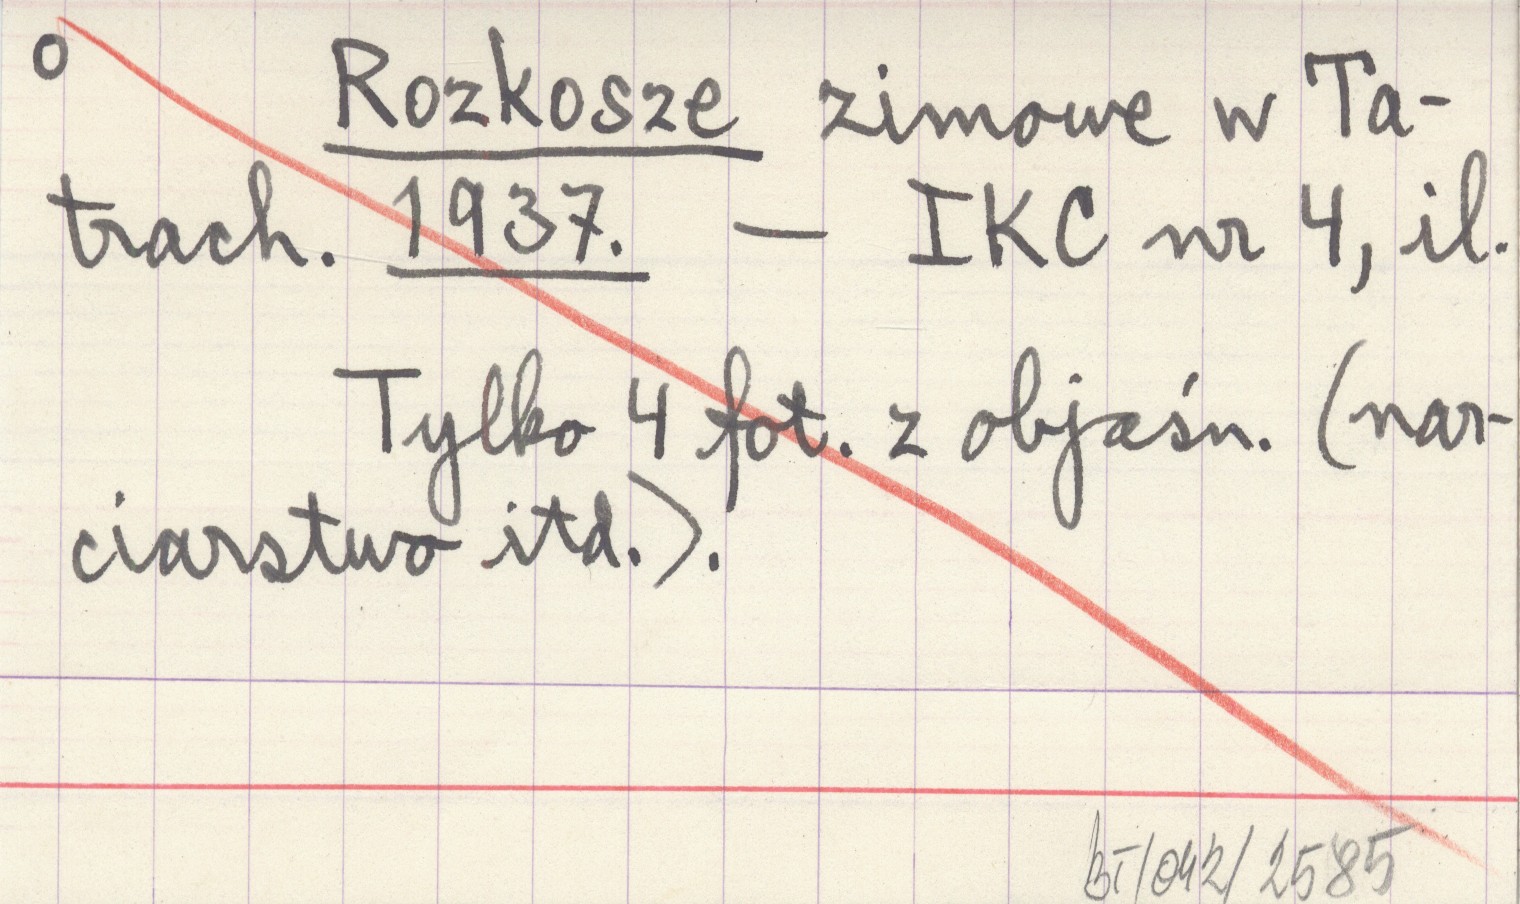 o Rozkosze zimowe w Ta-
trach. 1937. — IKC nr 4, il.
Tylko 4 fot. z objaśn. (nar-
ciarstwo itd.).
BT/042/2585